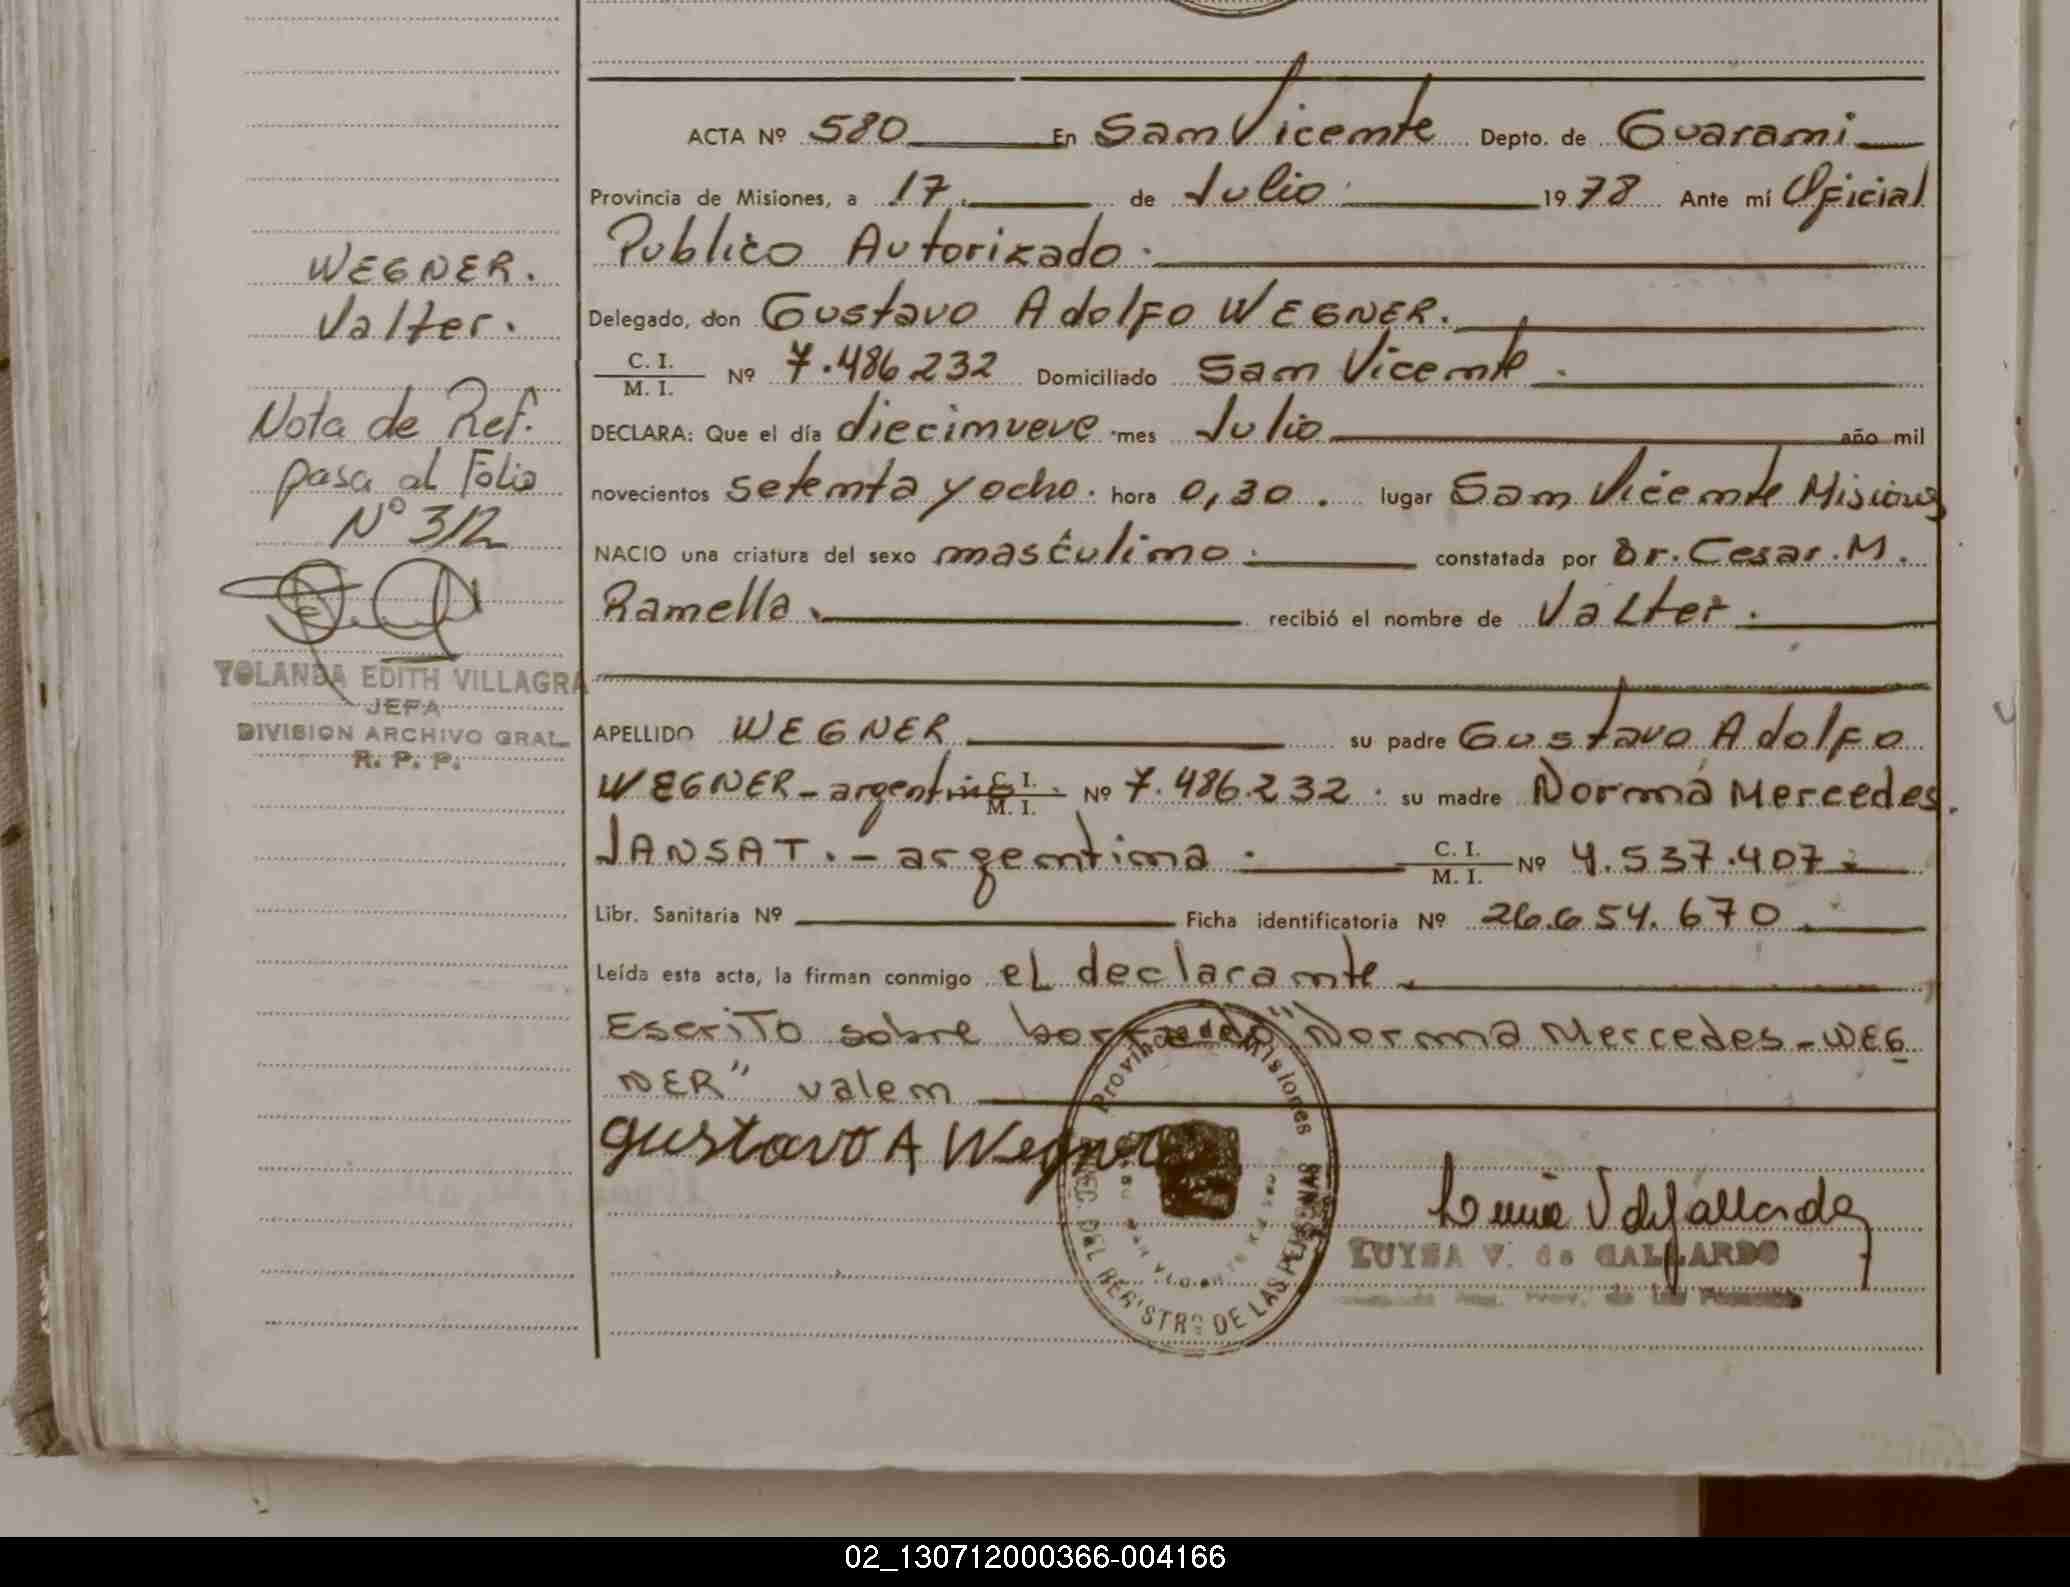 ACTA Nº 580 En San Vicente Depto. de Guarani
Provincia de Misiones, a 17. de Julio 1978 Ante mí Oficial
Publico Autorizado.
WEGNER.
Valter.
Delegado, don Gustavo Adolfo WEGNER.
C. I.
M. I. Nº 7.486.232 Domiciliado San Vicente.
Nota de Ref.
pasa al Folio
Nº 312
DECLARA: Que el día diecinueve mes Julio año mil
novecientos setenta y ocho. hora 0,30. lugar San Vicente Misiones
NACIO una criatura del sexo masculino. constatada por Dr. Cesar. M.
Ramella. recibió el nombre de Valter.
YOLANDA EDITH VILLAGRA
JEFA
DIVISION ARCHIVO GRAL.
R. P. P.
APELLIDO WEGNER su padre Gustavo Adolfo
WEGNER - argentino. C. I. M. I. Nº 7.486.232. su madre Norma Mercedes.
JANSAT. - argentina. C. I. M. I. Nº 4.537.407.
Libr. Sanitaria Nº Ficha identificatoria Nº 26.654.670.
Leída esta acta, la firman conmigo el declarante.
Escrito sobre borrado "Norma Mercedes - WEG
NER" valen
Gustavo A Wegner
Provincia de Misiones
DEL REGISTRO DE LAS PERSONAS
LUYSA V. de GALLARDO
02_130712000366-004166